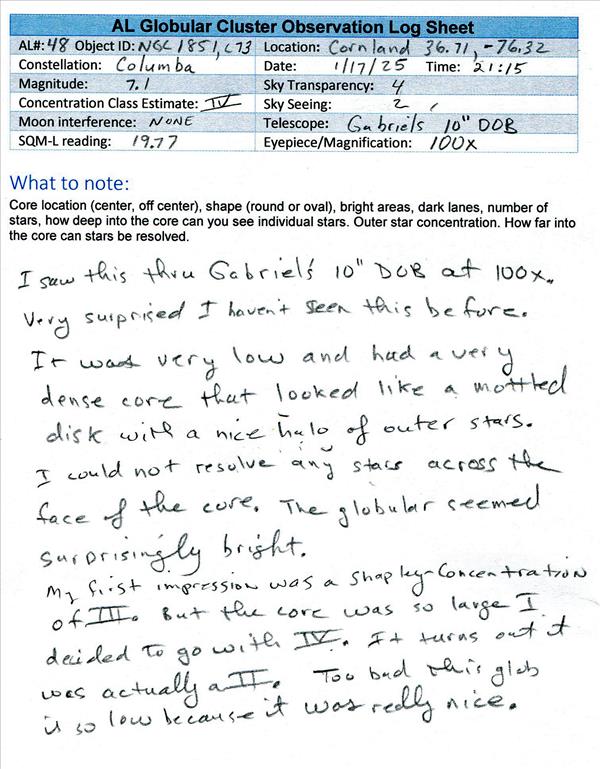 AL Globular Cluster Observation Log Sheet
AL#: 48 Object ID: NGC 1851, C73 Location: Cornland 36.71, -76.32
Constellation: Columba Date: 1/17/25 Time: 21:15
Magnitude: 7.1 Sky Transparency: 4
Concentration Class Estimate: IV Sky Seeing: 2
Moon interference: NONE Telescope: Gabriels 10" DOB
SQM-L reading: 19.77 Eyepiece/Magnification: 100x
What to note:
Core location (center, off center), shape (round or oval), bright areas, dark lanes, number of
stars, how deep into the core can you see individual stars. Outer star concentration. How far into
the core can stars be resolved.
I saw this thru Gabriel's 10" DOB at 100x.
Very surprised I haven't seen this before.
It was very low and had a very
dense core that looked like a mottled
disk with a nice halo of outer stars.
I could not resolve any stars across the
face of the core. The globular seemed
surprisingly bright.
My first impression was a Shapley-Concentration
of III. But the core was so large I
decided to go with IV. It turns out it
was actually a II. Too bad this glob
is so low because it was really nice.